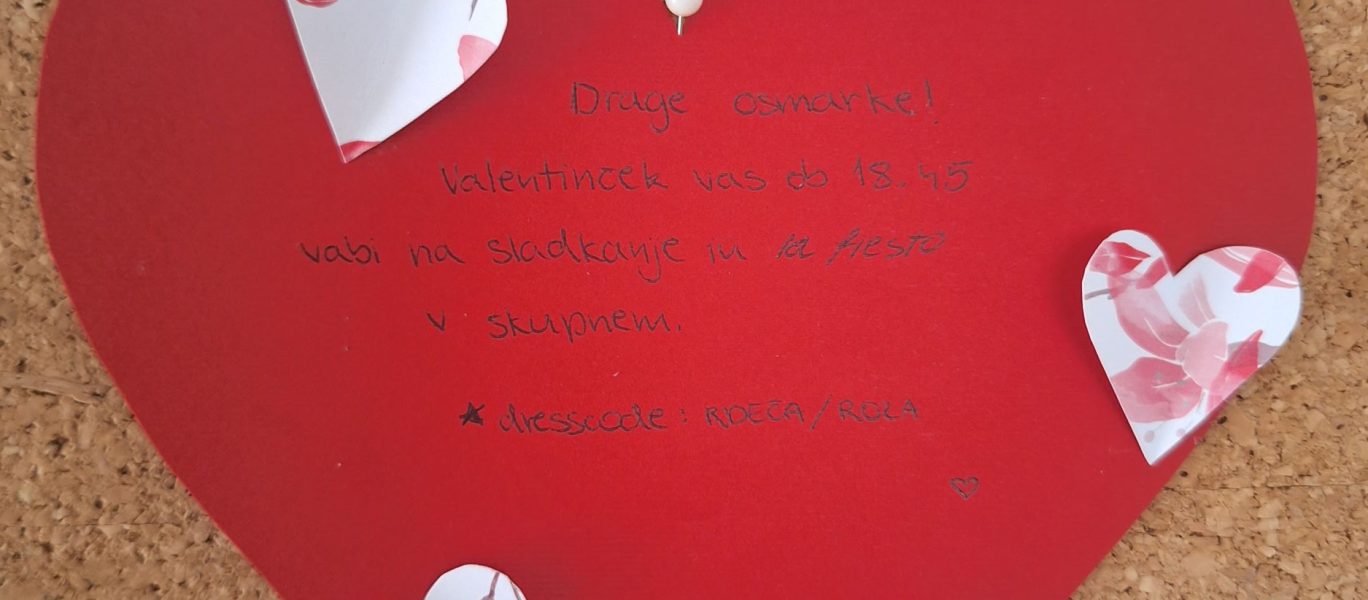 Drage osmarke!
Valentinček vas ob 18.45
vabi na sladkanje in la fiesto
v skupnem.
★ dresscode: RDEČA/ROZA
♡